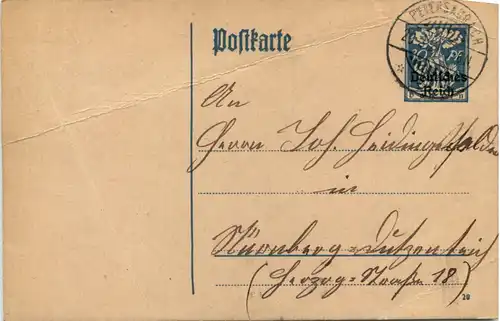 PETERSAURACH
Postkarte
30 Pf
Deutsches
Reich
An
Herrn Joh.
in
Nürnberg-Dutzenteich
(Herzog-Straße 18)
20